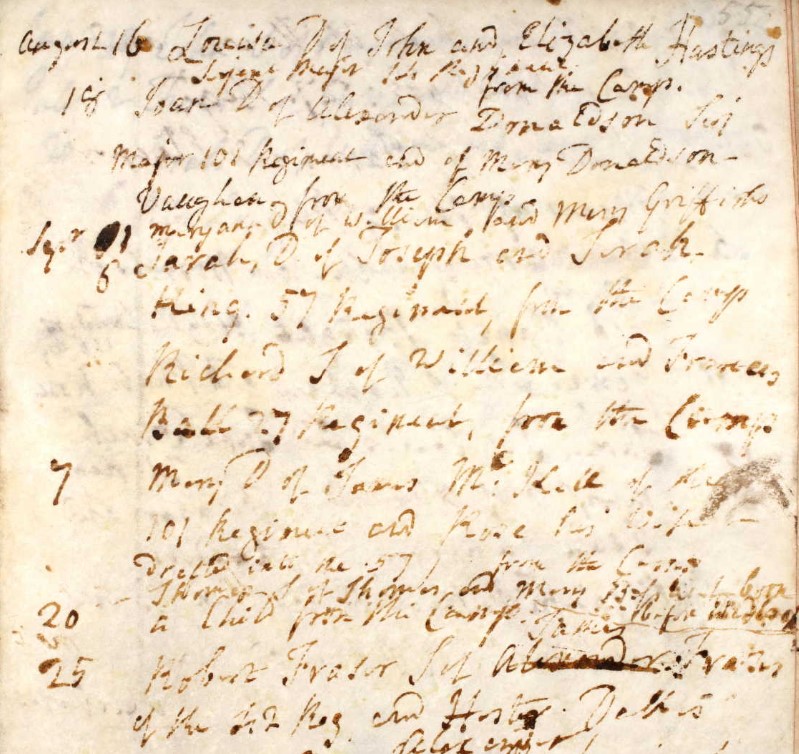 55
August 16 Louisa D of John and Elizabeth Hastings
Major Regiment
from the Camp.
18 Joan D of Alexander Donaldson Srj
Major 101 Regiment and of Mary Donaldson
Vaughan from the Camp
Maryann D of William and Mary Griffiths
Sepr 1
6 Sarah, D. of Joseph and Sarah
King. 57 Regiment, from the Camp
Richard S of William and Frances
Ball 27 Regiment, from the Camp
7 Mary D of James Mc of the
101 Regiment and Rose his Wife
drafted into the 57 from the Camp
Thomas S of Thomas and Mary born
20 a Child from the Camp. before
James
25 Robert Fraser S of Alexander Fraser
of the 42 Reg and Hester
Alexander